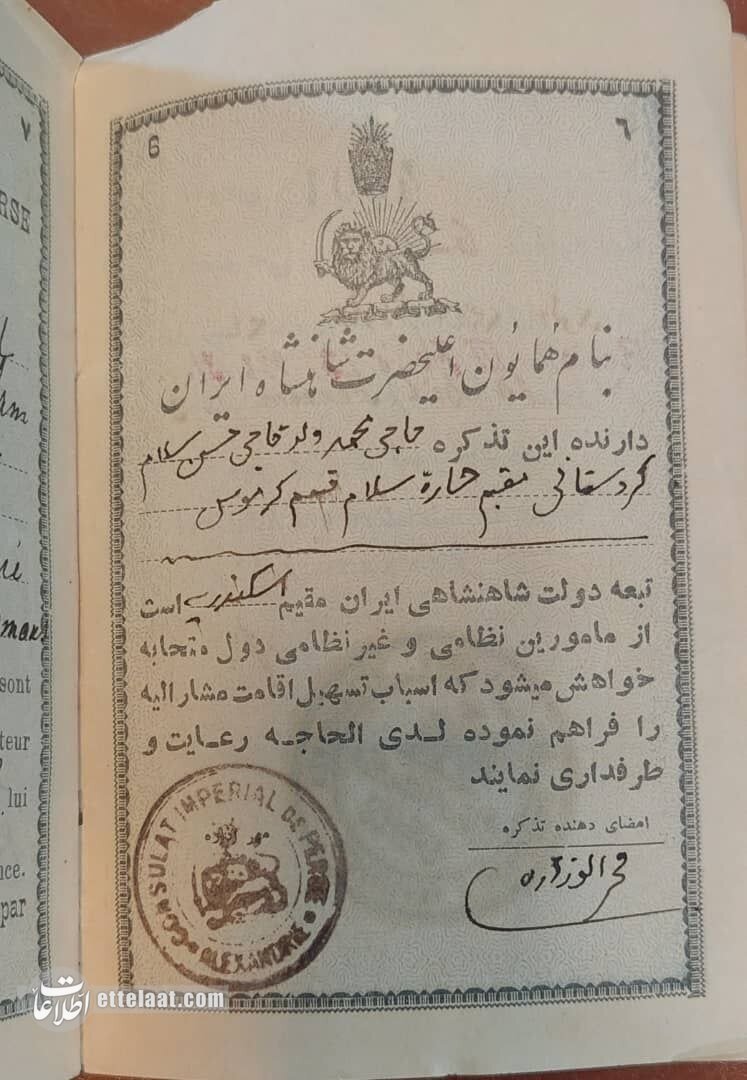 6
٦
بنام همایون اعلیحضرت شاهنشاه ایران
دارنده این تذکره حاجی محمد ولد حاجی حسن سلام
کردستانی مقیم حارة سلام قسم کرموس
تبعه دولت شاهنشاهی ایران مقیم اسکندریه است
از مامورین نظامی و غیر نظامی دول متحابه
خواهش میشود که اسباب تسهیل اقامت مشارالیه
را فراهم نموده لدی الحاجه رعایت و
طرفداری نمایند
امضای دهنده تذکره
CONSULAT IMPERIAL DE PERSE
ALEXANDRIE
٧
RSE
sont
teur
lui
nce.
par
اطلاعات ettelaat.com